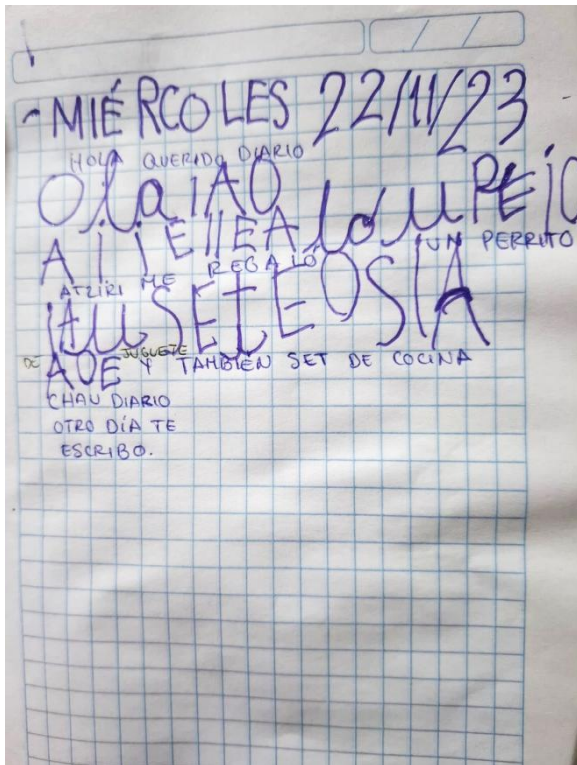 - MIÉRCOLES 22/11/23
HOLA QUERIDO DIARIO
OlaiAO
AiiEllEA lo u PEiO
ATZIRI ME REGALÓ UN PERRITO
iau SETEOSIA
DE JUGUETE Y TAMBIÉN SET DE COCINA
AOE
CHAU DIARIO
OTRO DÍA TE
ESCRIBO.